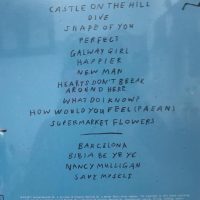 CASTLE ON THE HILL
DIVE
SHAPE OF YOU
PERFECT
GALWAY GIRL
HAPPIER
NEW MAN
HEARTS DON'T BREAK
AROUND HERE
WHAT DO I KNOW?
HOW WOULD YOU FEEL (PAEAN)
SUPERMARKET FLOWERS
BARCELONA
BIBIA BE YE YE
NANCY MULLIGAN
SAVE MYSELF